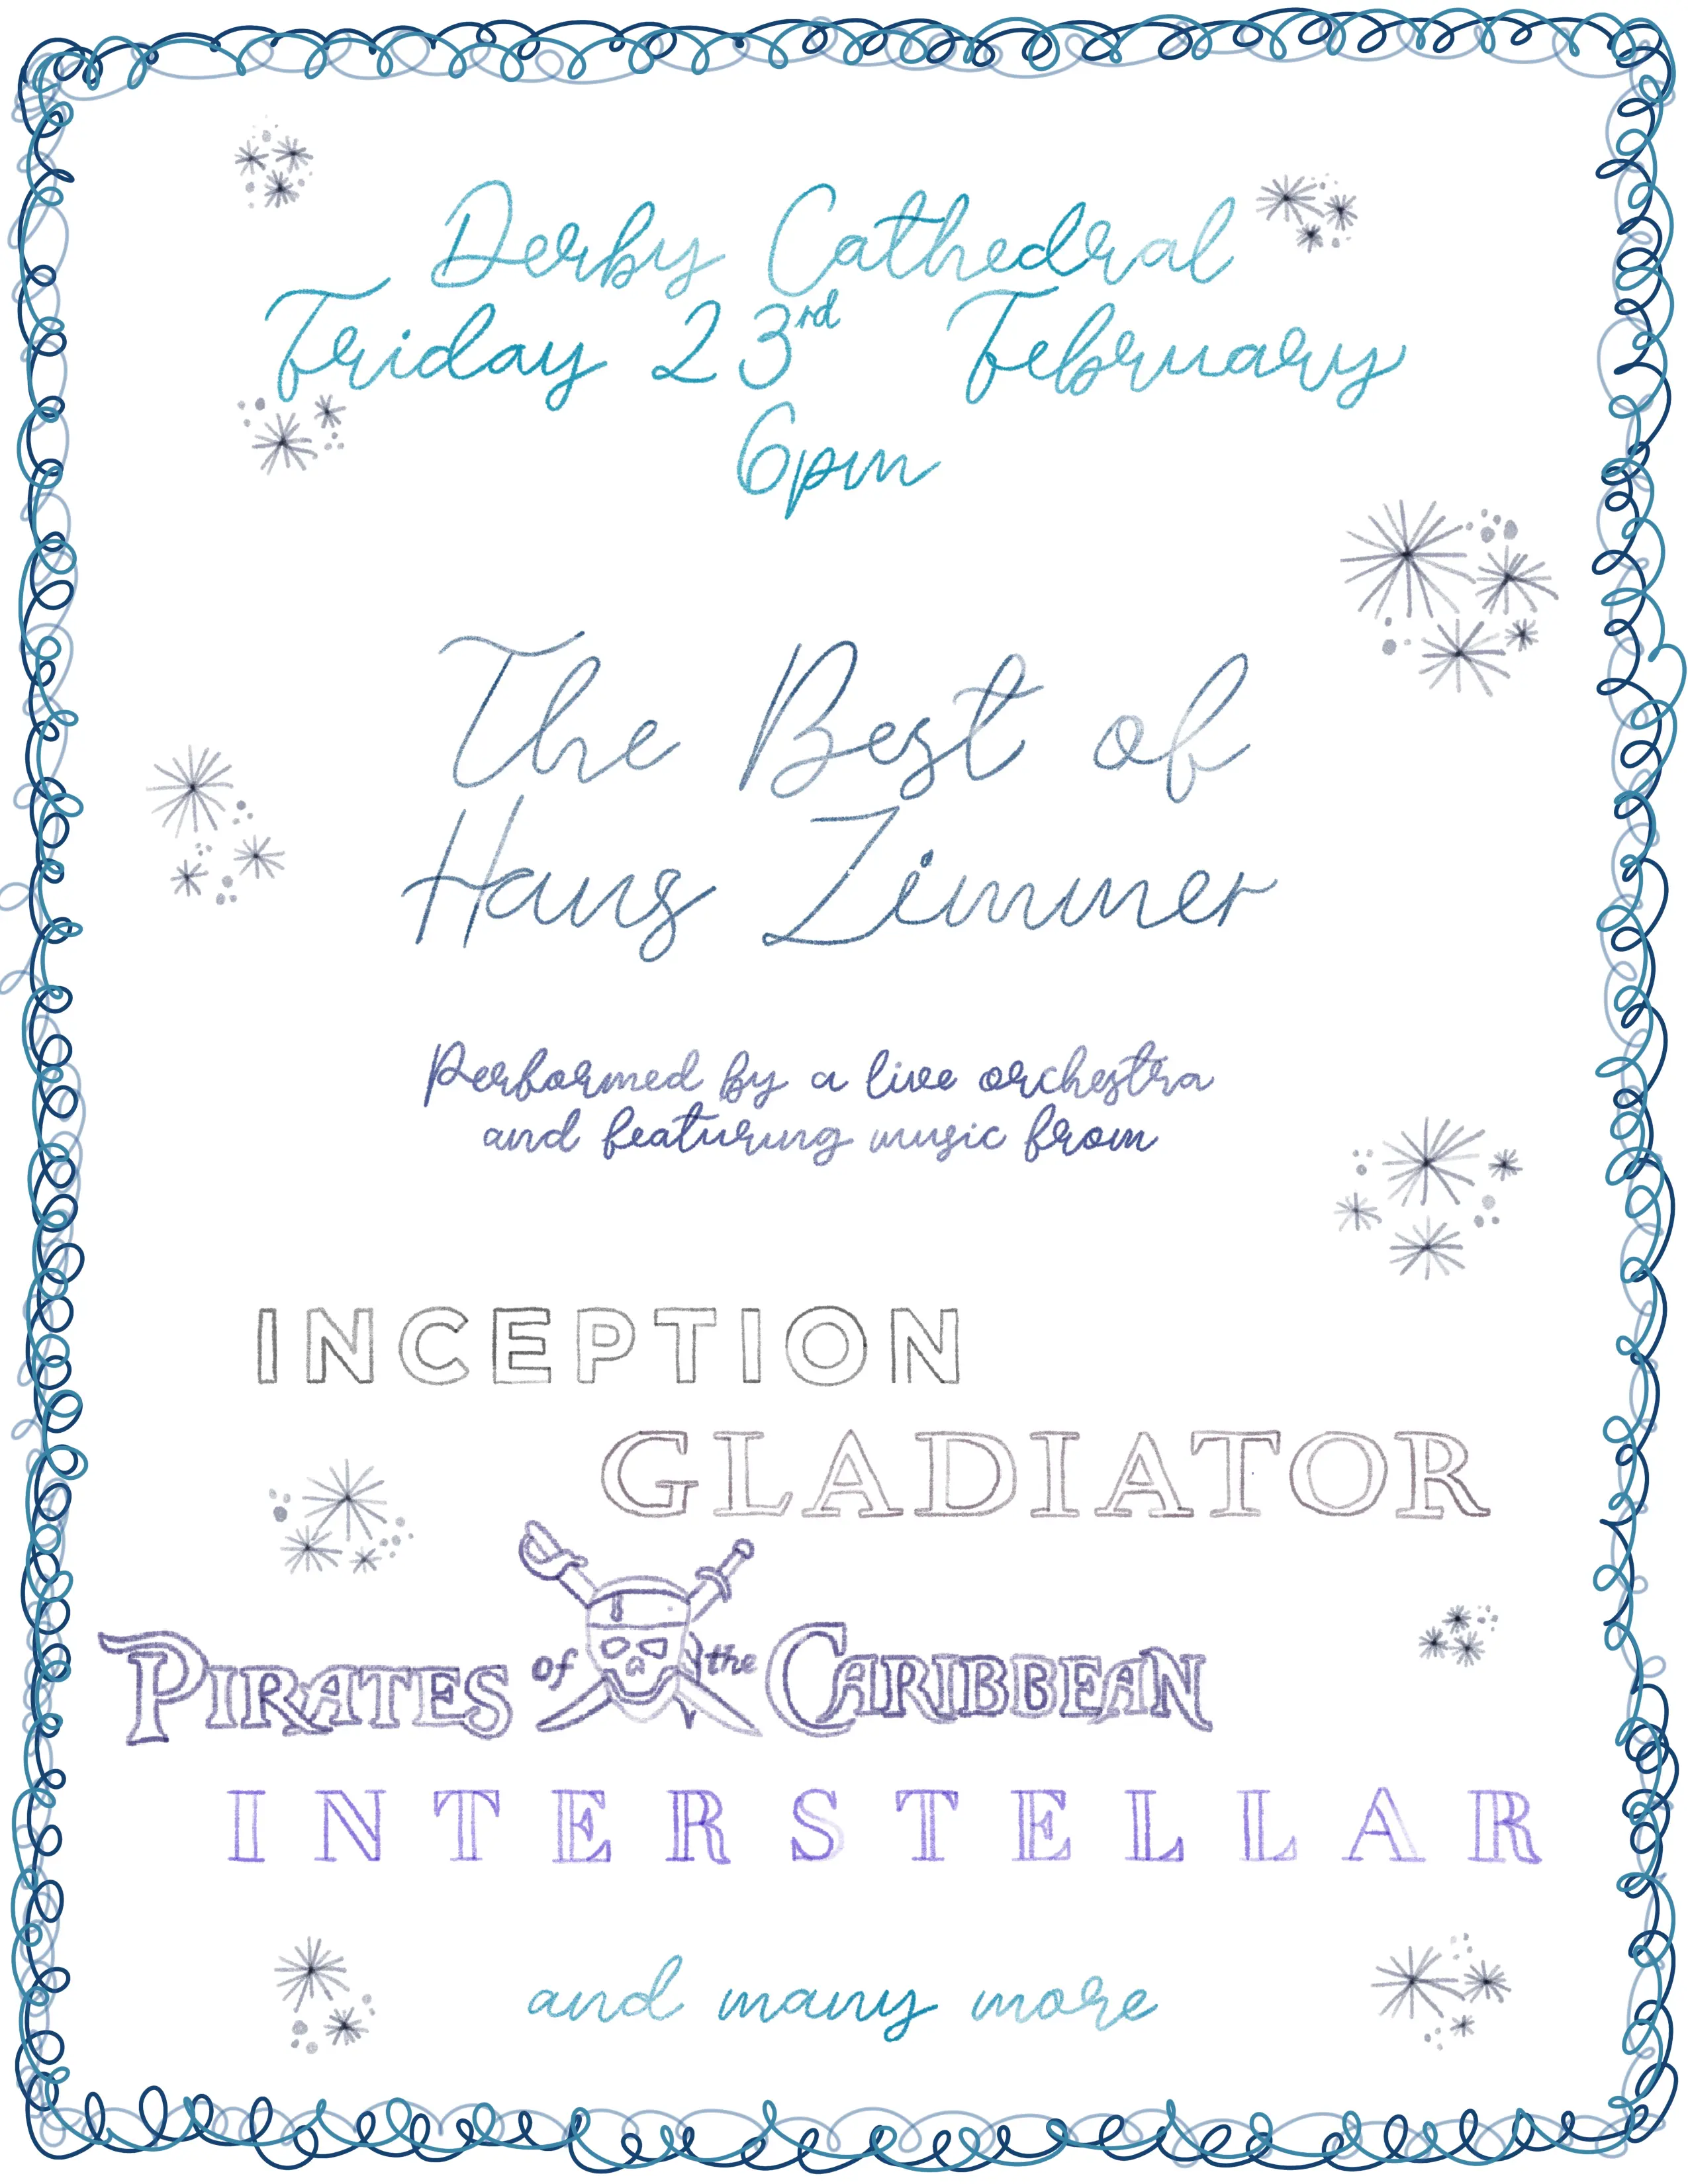 Derby Cathedral
Friday 23rd February
6pm
The Best of
Hans Zimmer
Performed by a live orchestra
and featuring music from
INCEPTION
GLADIATOR
PIRATES of the CARIBBEAN
INTERSTELLAR
and many more